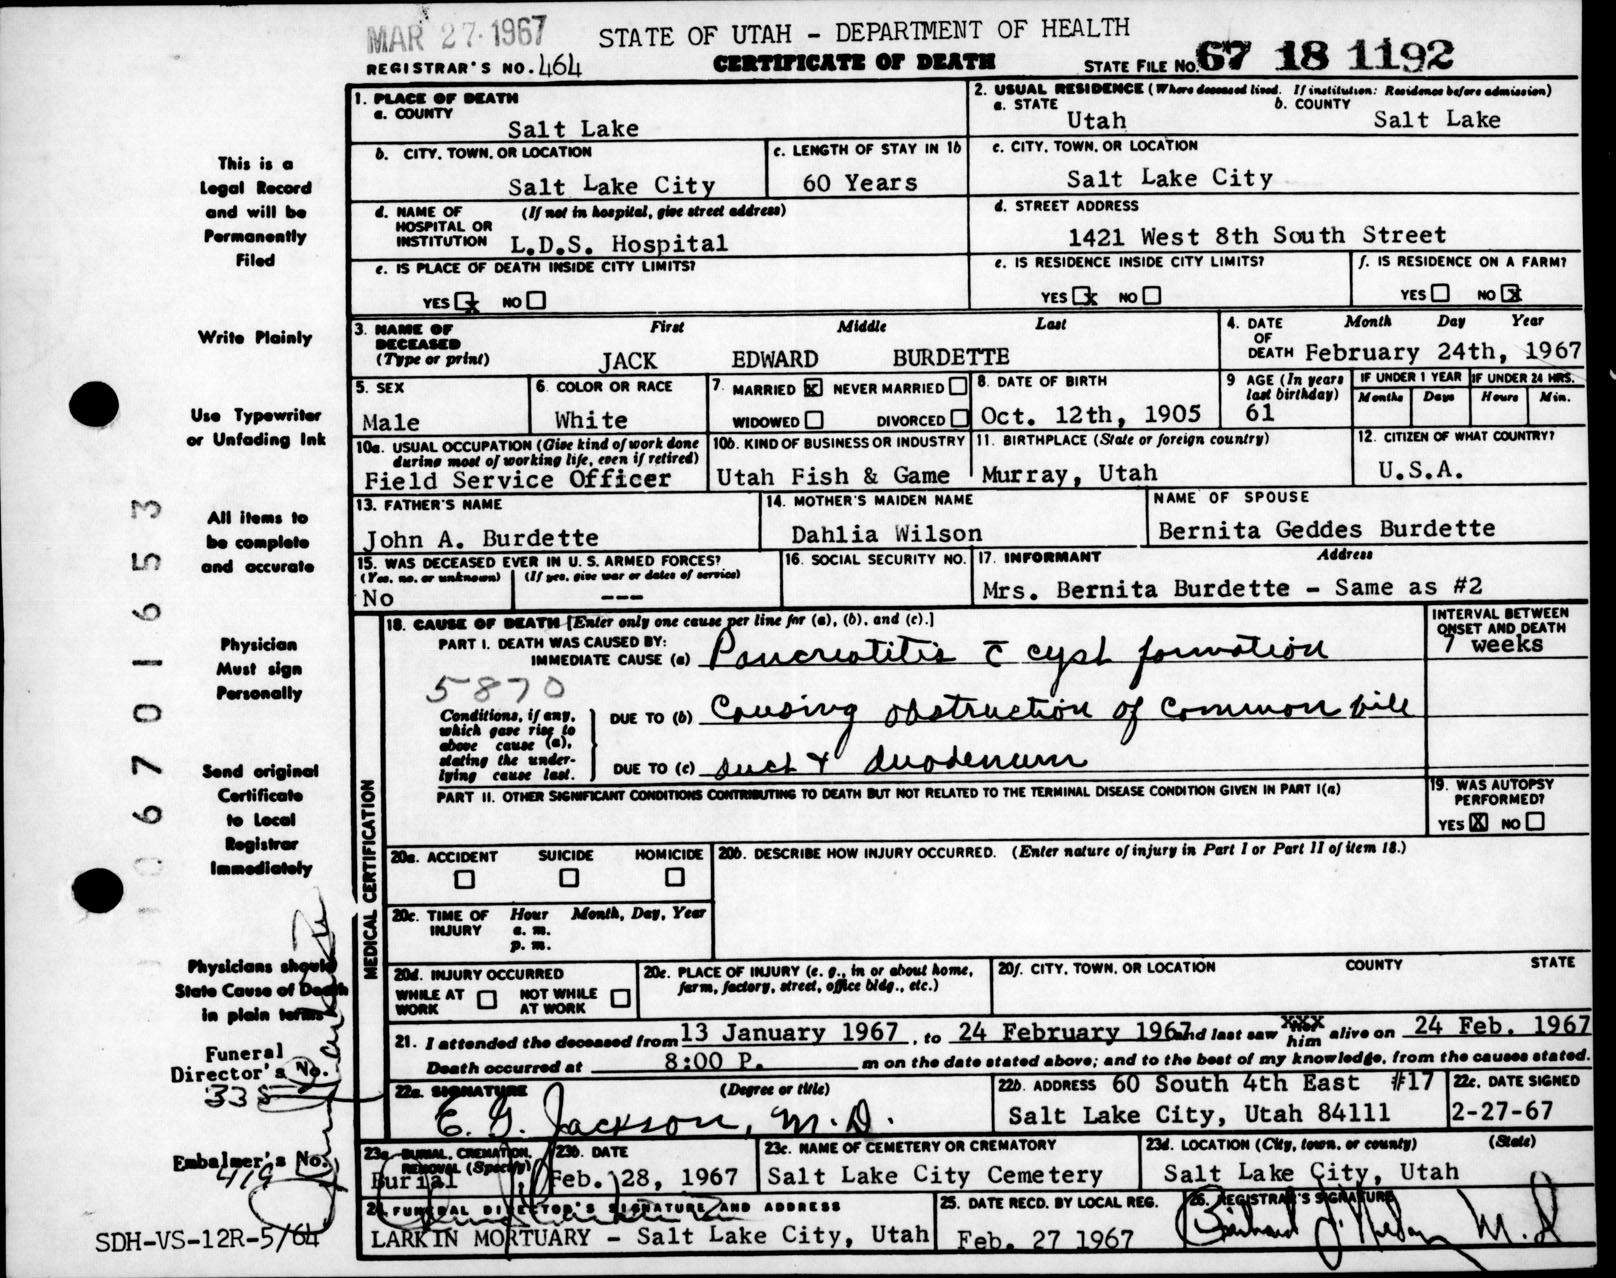 MAR 27 1967
STATE OF UTAH - DEPARTMENT OF HEALTH
REGISTRAR'S NO. 464
CERTIFICATE OF DEATH
STATE FILE NO. 67 18 1192
1. PLACE OF DEATH
a. COUNTY
Salt Lake
2. USUAL RESIDENCE (Where deceased lived. If institution: Residence before admission)
a. STATE
Utah
b. COUNTY
Salt Lake
b. CITY, TOWN, OR LOCATION
Salt Lake City
c. LENGTH OF STAY IN 1b
60 Years
c. CITY, TOWN, OR LOCATION
Salt Lake City
d. NAME OF HOSPITAL OR INSTITUTION
(If not in hospital, give street address)
L.D.S. Hospital
d. STREET ADDRESS
1421 West 8th South Street
e. IS PLACE OF DEATH INSIDE CITY LIMITS?
YES x NO
e. IS RESIDENCE INSIDE CITY LIMITS?
YES x NO
f. IS RESIDENCE ON A FARM?
YES NO x
3. NAME OF DECEASED (Type or print)
First Middle Last
JACK EDWARD BURDETTE
4. DATE OF DEATH
Month Day Year
February 24th, 1967
5. SEX
Male
6. COLOR OR RACE
White
7. MARRIED x NEVER MARRIED
WIDOWED DIVORCED
8. DATE OF BIRTH
Oct. 12th, 1905
9 AGE (In years last birthday)
61
IF UNDER 1 YEAR
Months Days
IF UNDER 24 HRS.
Hours Min.
10a. USUAL OCCUPATION (Give kind of work done during most of working life, even if retired)
Field Service Officer
10b. KIND OF BUSINESS OR INDUSTRY
Utah Fish & Game
11. BIRTHPLACE (State or foreign country)
Murray, Utah
12. CITIZEN OF WHAT COUNTRY?
U.S.A.
13. FATHER'S NAME
John A. Burdette
14. MOTHER'S MAIDEN NAME
Dahlia Wilson
NAME OF SPOUSE
Bernita Geddes Burdette
15. WAS DECEASED EVER IN U.S. ARMED FORCES?
(Yes, no, or unknown) (If yes, give war or dates of service)
No ---
16. SOCIAL SECURITY NO.
17. INFORMANT Address
Mrs. Bernita Burdette - Same as #2
MEDICAL CERTIFICATION
18. CAUSE OF DEATH [Enter only one cause per line for (a), (b), and (c).]
PART I. DEATH WAS CAUSED BY:
IMMEDIATE CAUSE (a) Pancreatitis c̄ cyst formation
INTERVAL BETWEEN ONSET AND DEATH
7 weeks
5870
Conditions, if any, which gave rise to above cause (a), stating the underlying cause last.
DUE TO (b) Causing obstruction of common bile
DUE TO (c) duct & duodenum
PART II. OTHER SIGNIFICANT CONDITIONS CONTRIBUTING TO DEATH BUT NOT RELATED TO THE TERMINAL DISEASE CONDITION GIVEN IN PART I(a)
19. WAS AUTOPSY PERFORMED?
YES X NO
20a. ACCIDENT SUICIDE HOMICIDE
20b. DESCRIBE HOW INJURY OCCURRED. (Enter nature of injury in Part I or Part II of item 18.)
20c. TIME OF INJURY Hour Month, Day, Year
a. m.
p. m.
20d. INJURY OCCURRED
WHILE AT WORK NOT WHILE AT WORK
20e. PLACE OF INJURY (e. g., in or about home, farm, factory, street, office bldg., etc.)
20f. CITY, TOWN, OR LOCATION COUNTY STATE
21. I attended the deceased from 13 January 1967, to 24 February 1967 and last saw xxx him alive on 24 Feb. 1967
Death occurred at 8:00 P. m on the date stated above; and to the best of my knowledge, from the causes stated.
22a. SIGNATURE (Degree or title)
E. G. Jackson, M.D.
22b. ADDRESS 60 South 4th East #17
Salt Lake City, Utah 84111
22c. DATE SIGNED
2-27-67
23a. BURIAL, CREMATION, REMOVAL (Specify)
Burial
23b. DATE
Feb. 28, 1967
23c. NAME OF CEMETERY OR CREMATORY
Salt Lake City Cemetery
23d. LOCATION (City, town, or county) (State)
Salt Lake City, Utah
24. FUNERAL DIRECTOR'S SIGNATURE AND ADDRESS
LARKIN MORTUARY - Salt Lake City, Utah
25. DATE RECD. BY LOCAL REG.
Feb. 27 1967
26. REGISTRAR'S SIGNATURE
M.D.
This is a
Legal Record
and will be
Permanently
Filed
Write Plainly
Use Typewriter
or Unfading Ink
All items to
be complete
and accurate
Physician
Must sign
Personally
Send original
Certificate
to Local
Registrar
Immediately
Physicians should
State Cause of Death
in plain terms
Funeral
Director's No.
335
Embalmer's No.
419
SDH-VS-12R-5/64
0670 1653